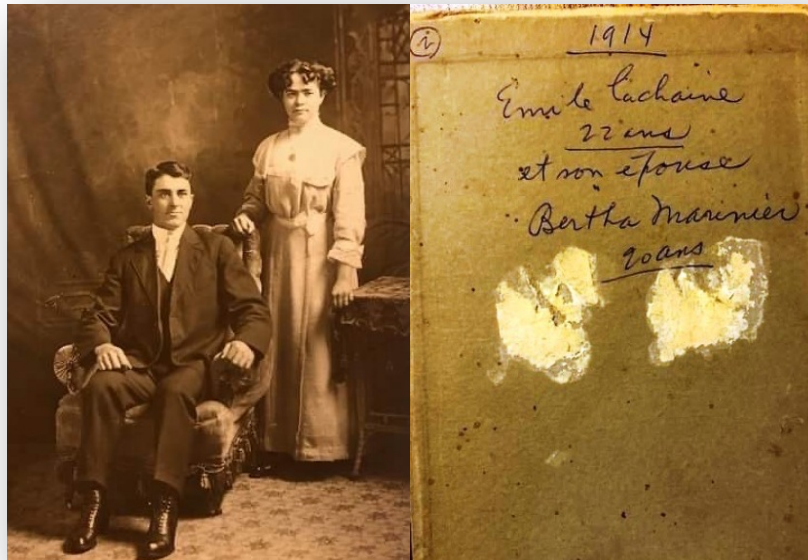 i
1914
Emile Lachaine
22 ans
et son épouse
Bertha Marinier
20 ans